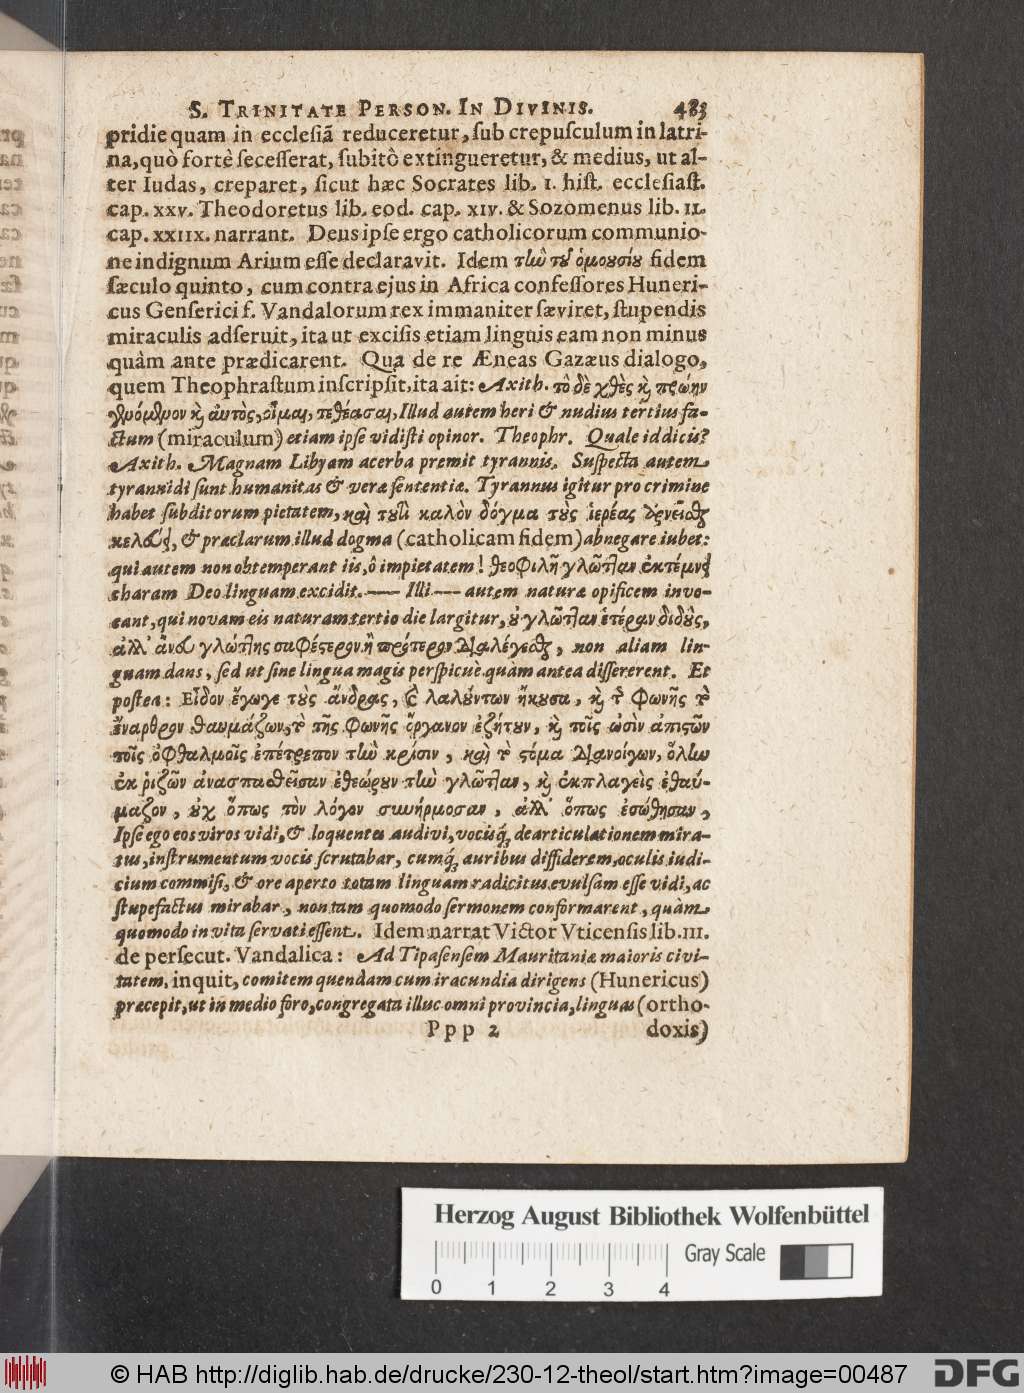 S. TRINITATE PERSON. IN DIVINIS. 483
pridie quam in eccleſiã reduceretur, ſub crepuſculum in latri-
na, quò fortè ſeceſſerat, ſubitò extingueretur, & medius, ut al-
ter Iudas, creparet, ſicut hæc Socrates lib. I. hiſt. eccleſiaſt.
cap. XXV. Theodoretus lib. eod. cap. XIV. & Sozomenus lib. II.
cap. XXIIX. narrant. Deus ipſe ergo catholicorum communio-
ne indignum Arium eſſe declaravit. Idem τὴν τοῦ ὁμουσίου fidem
ſæculo quinto, cum contra ejus in Africa confeſſores Huneri-
cus Genſerici f. Vandalorum rex immaniter ſæviret, ſtupendis
miraculis adſeruit, ita ut exciſis etiam linguis eam non minus
quàm ante prædicarent. Qua de re Æneas Gazæus dialogo,
quem Theophraſtum inſcripſit, ita ait: Axith. τὸ δὲ χθὲς καὶ πρώην
γενόμενον καὶ αὐτὸς, οἶμαι, τεθέασαι, Illud autem heri & nudius tertius fa-
ctum (miraculum) etiam ipſe vidiſti opinor. Theophr. Quale id dicis?
Axith. Magnam Libyam acerba premit tyrannis. Suſpecta autem
tyrannidi ſunt humanitas & vera ſententia. Tyrannus igitur pro crimine
habet ſubditorum pietatem, καὶ τουτὶ καλὸν δόγμα τοὺς ἱερέας ἀρνεῖσθαι
κελεύει, & præclarum illud dogma (catholicam fidem) abnegare iubet:
qui autem non obtemperant iis, ô impietatem! θεοφιλῆ γλῶτταν ἐκτέμνει
charam Deo linguam excidit. — Illi — autem naturæ opificem invo-
cant, qui novam eis naturam tertio die largitur, οὐ γλῶτταν ἑτέραν διδοὺς,
ἀλλ' ἄνευ γλώττης σαφέστερον ἢ πρότερον διαλέγεσθαι, non aliam lin-
guam dans, ſed ut ſine lingua magis perſpicuè quàm antea diſſererent. Et
poſtea: Εἶδον ἔγωγε τοὺς ἄνδρας, καὶ λαλούντων ἤκουσα, καὶ τῆς φωνῆς τὸ
ἔναρθρον θαυμάζων, τὸ τῆς φωνῆς ὄργανον ἐζήτουν, καὶ τοῖς ὠσὶν ἀπιστῶν
τοῖς ὀφθαλμοῖς ἐπέτρεπον τὴν κρίσιν, καὶ τὸ στόμα διανοίγων, ὅλην
ἐκ ῥιζῶν ἀνασπαθεῖσαν ἐθεώρουν τὴν γλῶτταν, καὶ ἐκπλαγεὶς ἐθαύ-
μαζον, οὐχ ὅπως τὸν λόγον συνήρμοσαν, ἀλλ' ὅπως ἐσώθησαν,
Ipſe ego eos viros vidi, & loquentes audivi, vocisq́; de articulatione mira-
tus, inſtrumentum vocis ſcrutabar, cumq́; auribus diffiderem, oculis iudi-
cium commiſi, & ore aperto totam linguam radicitus evulſam eſſe vidi, ac
ſtupefactus mirabar, non tam quomodo ſermonem conformarent, quàm
quomodo in vita ſervati eſſent. Idem narrat Victor Vticenſis lib. III.
de perſecut. Vandalica: Ad Tipaſenſem Mauritaniæ maioris civi-
tatem, inquit, comitem quendam cum iracundia dirigens (Hunericus)
præcepit, ut in medio foro, congregata illuc omni provincia, linguas (ortho-
Ppp 2 doxis)
Herzog August Bibliothek Wolfenbüttel
Gray Scale
0 1 2 3 4
© HAB http://diglib.hab.de/drucke/230-12-theol/start.htm?image=00487
DFG